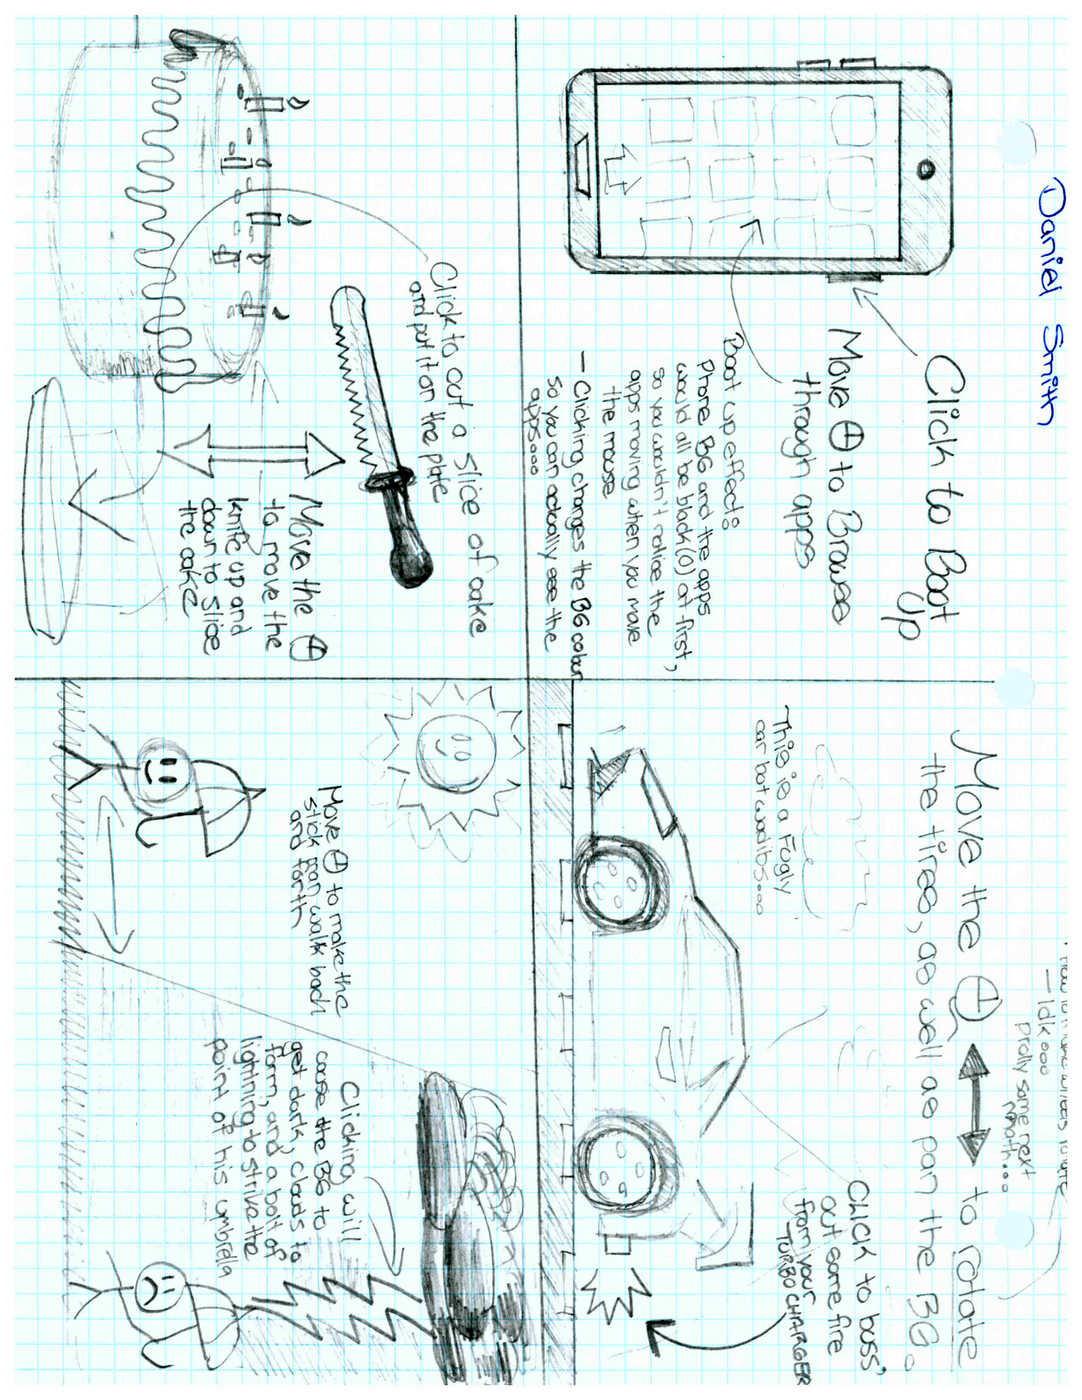 Daniel Smith
Click to Boot
Up
Move to Browse
through apps
Boot up effect:
Phone BG and the apps
would all be black(0) at first,
so you wouldn't notice the
apps moving when you move
the mouse
- Clicking changes the BG colour
so you can actually see the
apps...
Click to cut a slice of cake
and put it on the plate
Move the
to move the
knife up and
down to slice
the cake
- Idk...
Prolly same next
month...
Move the to rotate
the tires, as well as pan the BG.
This is a Fugly
car but wadibs...
CLICK to buss,
out some fire
from your
TURBO CHARGER
Move to make the
stick man walk back
and forth
Clicking will
cause the BG to
get dark, clouds to
form, and a bolt of
lightning to strike the
point of his umbrella